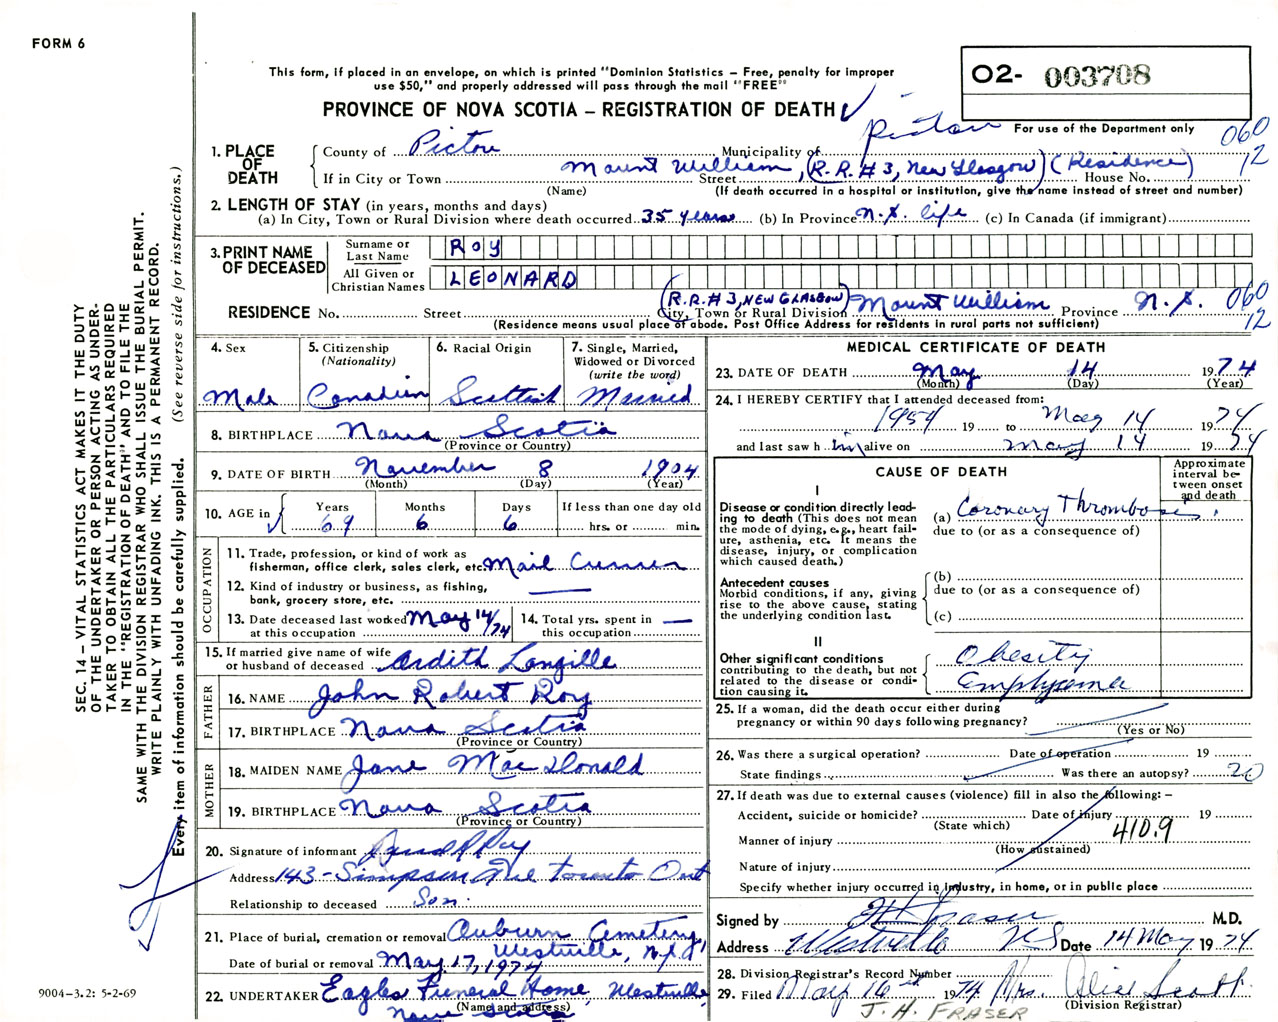 FORM 6
This form, if placed in an envelope, on which is printed "Dominion Statistics – Free, penalty for improper
use $50," and properly addressed will pass through the mail "FREE"
O2- 003708
PROVINCE OF NOVA SCOTIA – REGISTRATION OF DEATH
For use of the Department only
060
12
1. PLACE OF DEATH
County of Pictou Municipality of Pictou
If in City or Town Mount William, (R.R.#3, New Glasgow) (Residence) Street House No.
(Name) (If death occurred in a hospital or institution, give the name instead of street and number)
2. LENGTH OF STAY (in years, months and days)
(a) In City, Town or Rural Division where death occurred 35 years (b) In Province N.S. life (c) In Canada (if immigrant)
3. PRINT NAME OF DECEASED
Surname or Last Name ROY
All Given or Christian Names LEONARD
RESIDENCE No. Street (R.R.#3, NEW GLASGOW) Mount William City, Town or Rural Division Province N.S. 060
12
(Residence means usual place of abode. Post Office Address for residents in rural parts not sufficient)
4. Sex
Male
5. Citizenship
(Nationality)
Canadian
6. Racial Origin
Scottish
7. Single, Married,
Widowed or Divorced
(write the word)
Married
8. BIRTHPLACE Nova Scotia
(Province or Country)
9. DATE OF BIRTH November 8 1904
(Month) (Day) (Year)
10. AGE in
Years Months Days If less than one day old
69 6 6 hrs. or min.
OCCUPATION
11. Trade, profession, or kind of work as
fisherman, office clerk, sales clerk, etc. Mail
12. Kind of industry or business, as fishing,
bank, grocery store, etc. —
13. Date deceased last worked May 14/74
at this occupation
14. Total yrs. spent in —
this occupation
15. If married give name of wife
or husband of deceased Ardith Langille
FATHER
16. NAME John Robert Roy
17. BIRTHPLACE Nova Scotia
(Province or Country)
MOTHER
18. MAIDEN NAME Jane MacDonald
19. BIRTHPLACE Nova Scotia
(Province or Country)
20. Signature of informant
Address 143 - Simpson Ave Toronto Ont
Relationship to deceased Son.
21. Place of burial, cremation or removal Auburn Cemetery,
Westville, N.S.
Date of burial or removal May 17, 1974
22. UNDERTAKER Eagles Funeral Home, Westville,
(Name and address)
Nova Scotia
MEDICAL CERTIFICATE OF DEATH
23. DATE OF DEATH May 14 1974
(Month) (Day) (Year)
24. I HEREBY CERTIFY that I attended deceased from:
1954 19 to May 14 1974
and last saw h im alive on May 14 1974
CAUSE OF DEATH
Approximate
interval be-
tween onset
and death
I
Disease or condition directly lead-
ing to death (This does not mean
the mode of dying, e.g., heart fail-
ure, asthenia, etc. It means the
disease, injury, or complication
which caused death.)
(a) Coronary Thrombosis.
due to (or as a consequence of)
Antecedent causes
Morbid conditions, if any, giving
rise to the above cause, stating
the underlying condition last.
(b)
due to (or as a consequence of)
(c)
II
Other significant conditions
contributing to the death, but not
related to the disease or condi-
tion causing it.
Obesity
Emphysema
25. If a woman, did the death occur either during
pregnancy or within 90 days following pregnancy?
(Yes or No)
26. Was there a surgical operation? Date of operation 19
State findings Was there an autopsy?
27. If death was due to external causes (violence) fill in also the following: –
Accident, suicide or homicide? Date of injury 19
(State which)
410.9
Manner of injury
(How sustained)
Nature of injury
Specify whether injury occurred in industry, in home, or in public place
Signed by Fraser M.D.
Address Westville NS Date 14 May 1974
28. Division Registrar's Record Number
29. Filed May 16th 1974 Mrs. Alice Scott
(Division Registrar)
J. H. FRASER
SEC. 14 – VITAL STATISTICS ACT MAKES IT THE DUTY
OF THE UNDERTAKER OR PERSON ACTING AS UNDER-
TAKER TO OBTAIN ALL THE PARTICULARS REQUIRED
IN THE "REGISTRATION OF DEATH" AND TO FILE THE
SAME WITH THE DIVISION REGISTRAR WHO SHALL ISSUE THE BURIAL PERMIT.
WRITE PLAINLY WITH UNFADING INK. THIS IS A PERMANENT RECORD.
Every item of information should be carefully supplied. (See reverse side for instructions.)
9004-3.2: 5-2-69